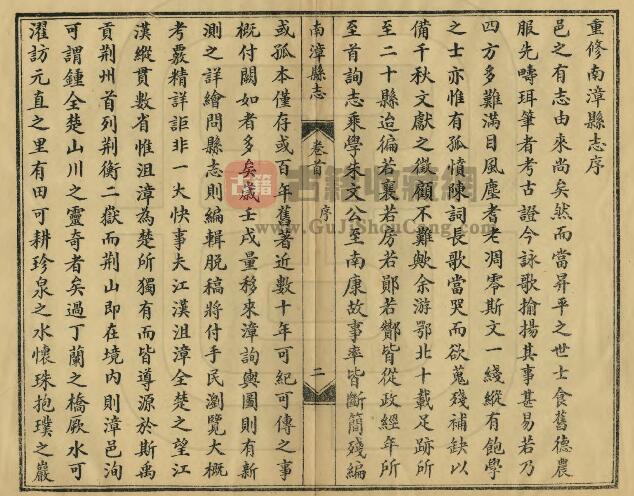 重修南漳縣志序
邑之有志由來尚矣然而當昇平之世士食舊德農
服先疇珥筆者考古證今詠歌揄揚其事甚易若乃
四方多難滿目風塵耆老凋零斯文一綫縱有飽學
之士亦惟有孤憤陳詞長歌當哭而欲蒐殘補缺以
備千秋文獻之徵顧不難歟余游鄂北十載足跡所
至二十縣迨徧若襄若房若鄖若酇皆從政經年所
至首詢志乘學朱文公至南康故事率皆斷簡殘編
南漳縣志
卷首
序
二
或孤本僅存或百年舊著近數十年可紀可傳之事
概付闕如者多矣歲壬戌量移來漳詢輿圖則有新
測之詳繪問縣志則編輯脫稿將付手民瀏覽大概
考覈精詳詎非一大快事夫江漢沮漳全楚之望江
漢縱貫數省惟沮漳為楚所獨有而皆導源於斯禹
貢荊州首列荊衡二嶽而荊山即在境內則漳邑洵
可謂鍾全楚山川之靈奇者矣過丁蘭之橋厥水可
濯訪元直之里有田可耕珍泉之水懷珠抱璞之巖
古籍
古籍收藏網
www.GuJiShouCang.com